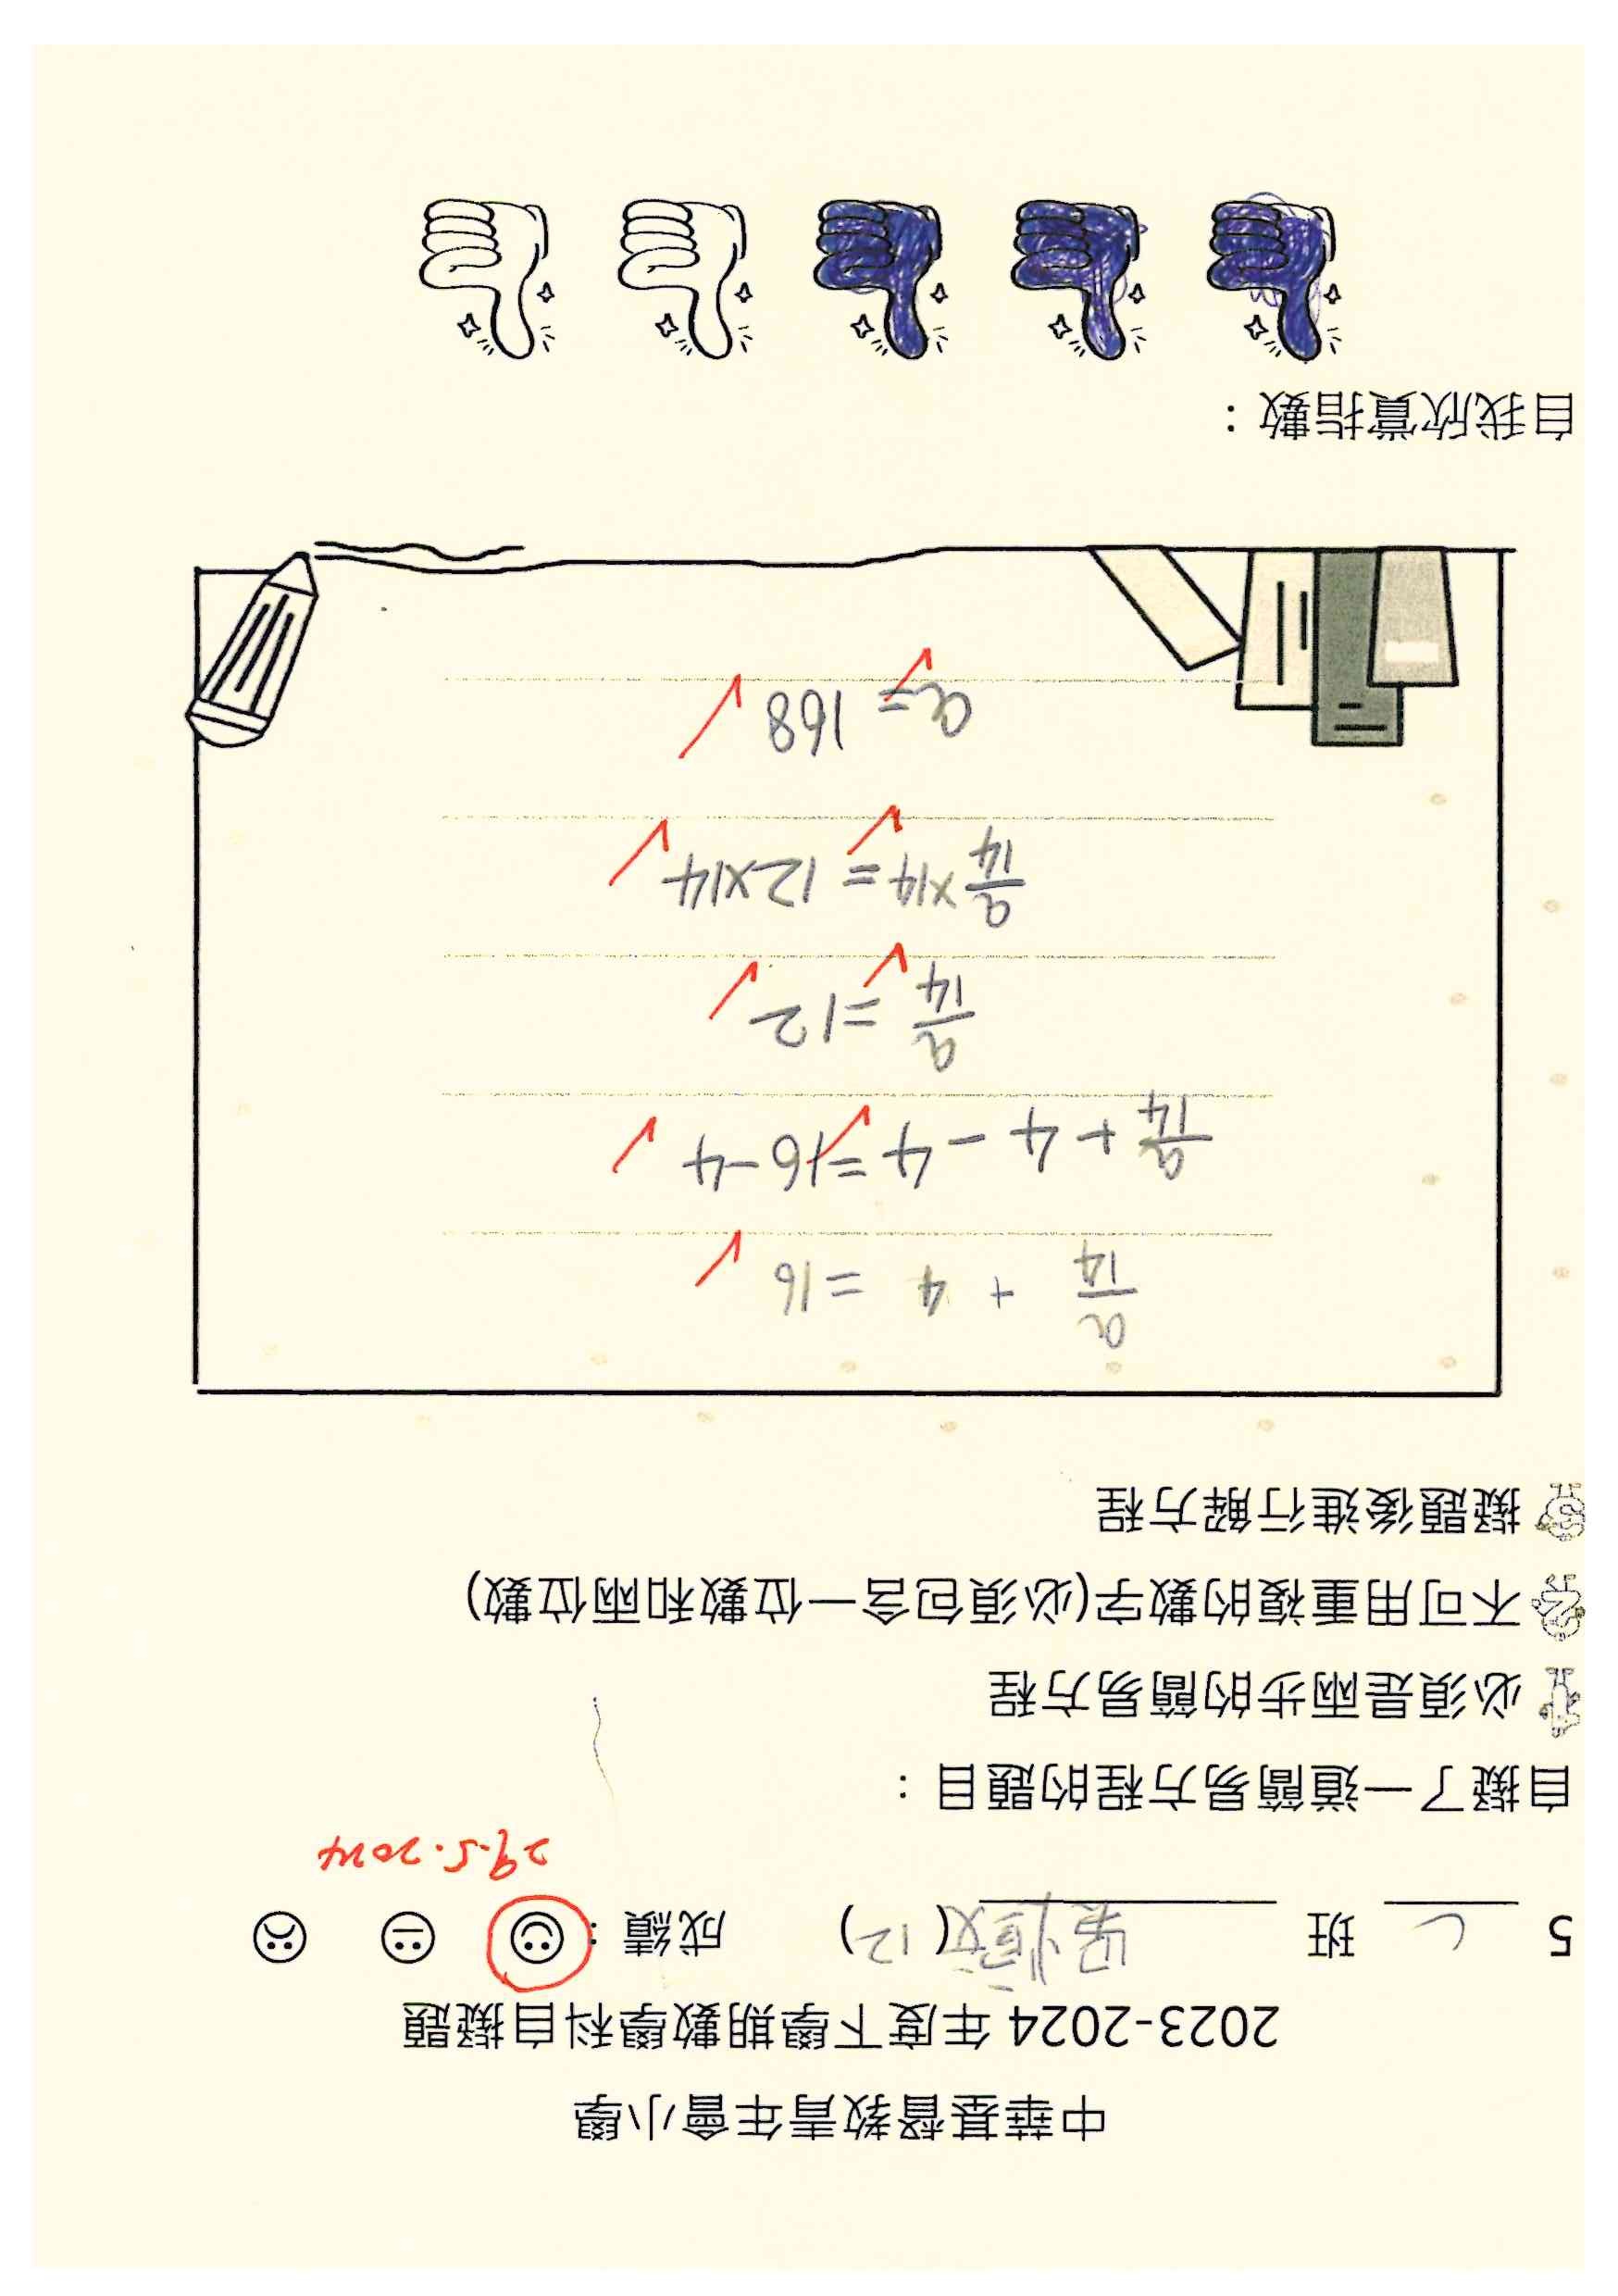 中華基督教青年會小學
2023-2024 年度下學期數學科自擬題
5 C 班 吳愷文(12) 成績：
29.5.2024
自擬了一道簡易方程的題目：
必須是兩步的簡易方程
不可用重複的數字(必須包含一位數和兩位數)
擬題後進行解方程
a/14 + 4 = 16
a/14 + 4 - 4 = 16 - 4
a/14 = 12
a/14 × 14 = 12 × 14
a = 168
自我欣賞指數：